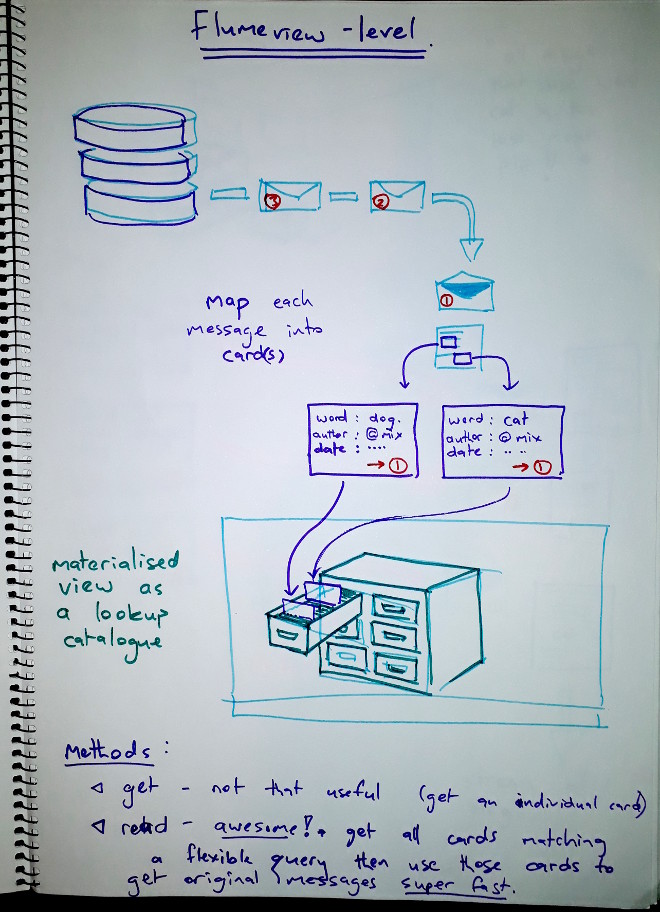 Flumeview - level.
③
②
①
Map each
message into
card(s)
word : dog.
author : @mix
date : ....
→ ①
word : cat
author : @mix
date : .. ..
→ ①
materialised
view as
a lookup
catalogue
Methods :
get - not that useful (get an individual card)
read - awesome! get all cards matching
a flexible query then use those cards to
get original messages super fast.